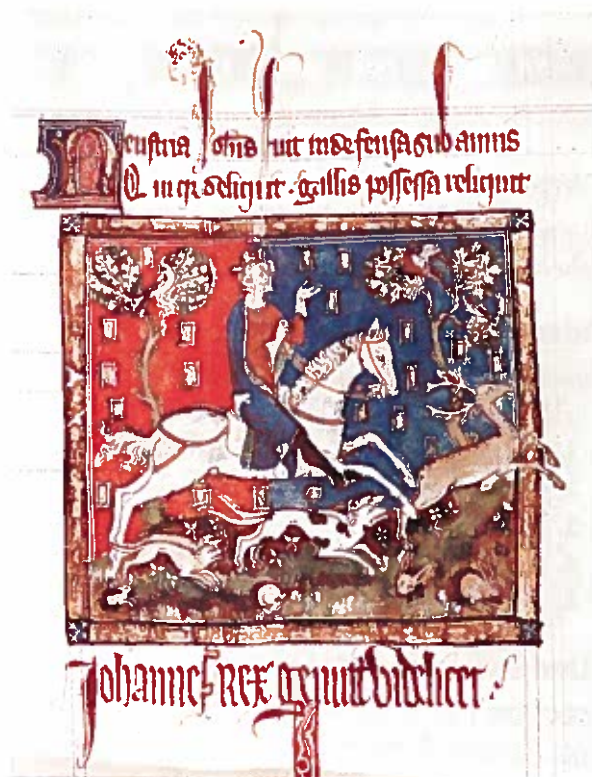 Neustria Johīs fuit indefensa sub annis
Quicq̄ deliquit. gallis possessa reliquit
Johannes Rex genuit videlicet.